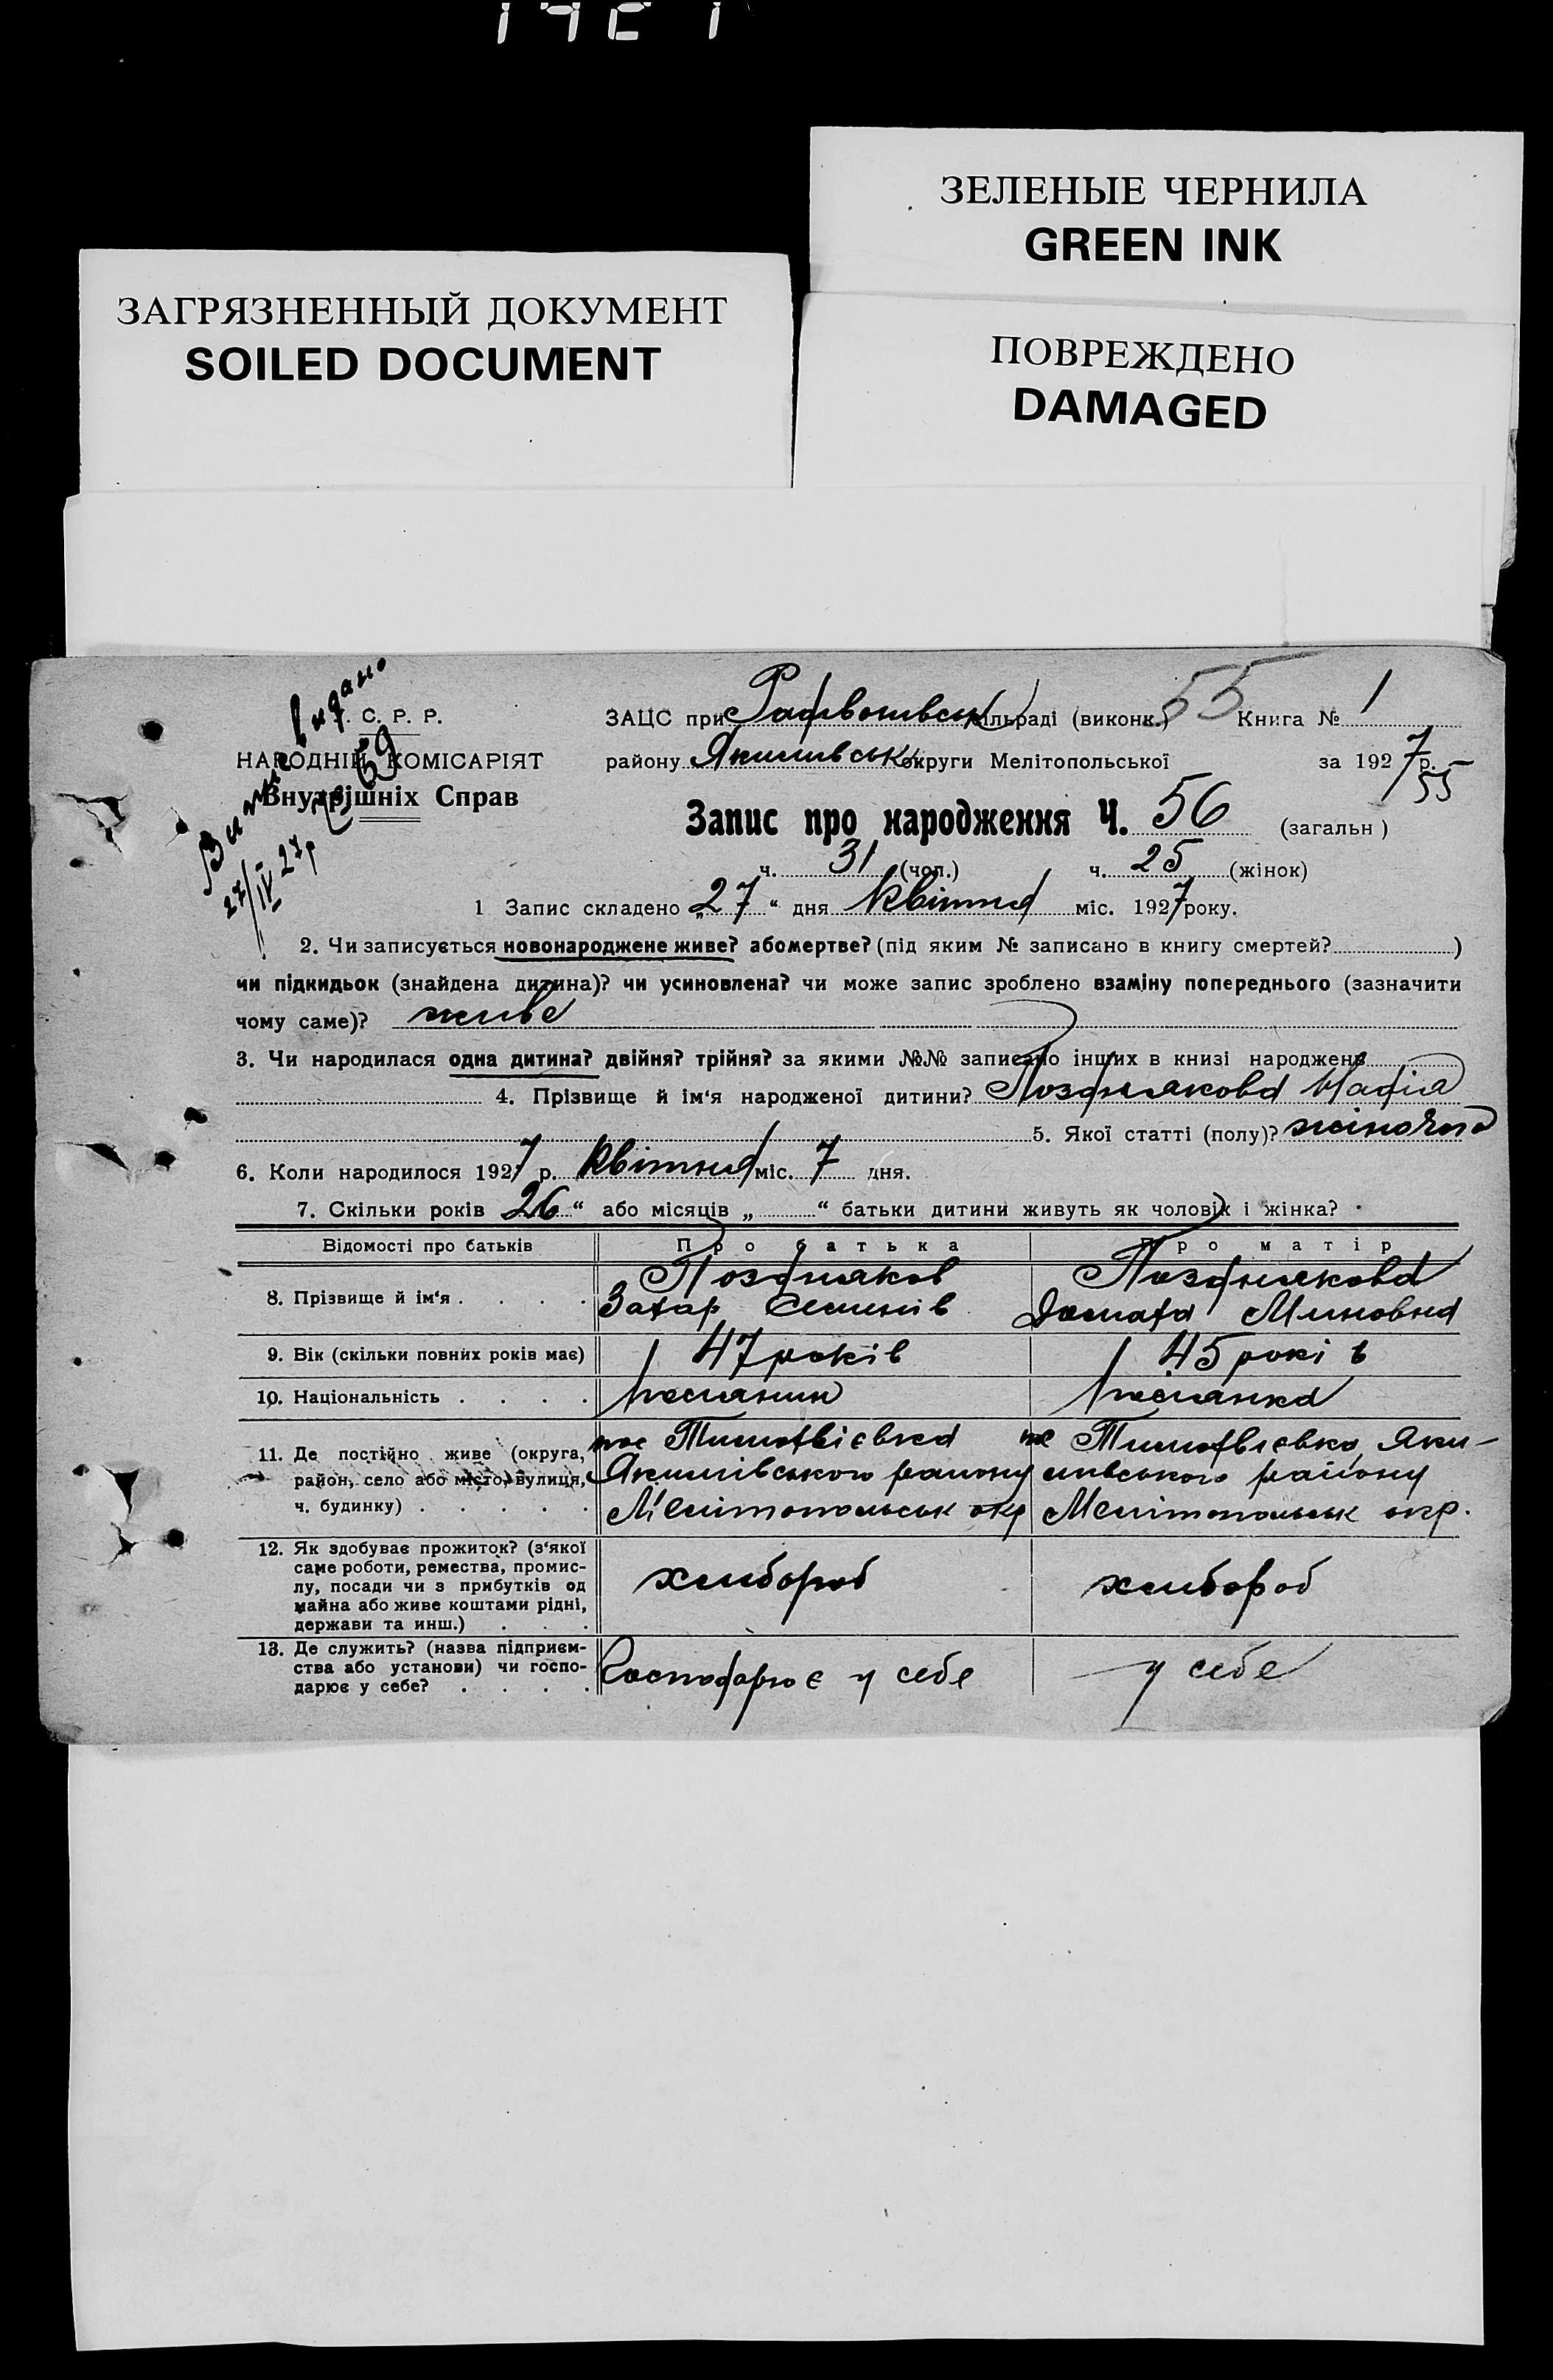 ЗЕЛЕНЫЕ ЧЕРНИЛА
GREEN INK
ЗАГРЯЗНЕННЫЙ ДОКУМЕНТ
SOILED DOCUMENT
ПОВРЕЖДЕНО
DAMAGED
видано
№ 69
27/IV 27р
С. Р. Р.
НАРОДНІЙ КОМІСАРІЯТ
Внутрішніх Справ
ЗАЦС при сільраді (виконк.) 55 Книга № 1
району Якимівськ округи Мелітопольської за 1927 р.
55
Запис про народження Ч. 56 (загальн)
ч. 31 (чол.) ч. 25 (жінок)
1 Запис складено „27“ дня квітня міс. 1927 року.
2. Чи записується новонароджене живе? або мертве? (під яким № записано в книгу смертей? )
чи підкидьок (знайдена дитина)? чи усиновлена? чи може запис зроблено взаміну попереднього (зазначити
чому саме)? живе
3. Чи народилася одна дитина? двійня? трійня? за якими №№ записано інших в книзі народжень
4. Прізвище й ім‘я народженої дитини? Позднякова
5. Якої статті (полу)? жіночого
6. Коли народилося 1927 р. квітня міс. 7 дня.
7. Скільки років 26“ або місяців „ “ батьки дитини живуть як чоловік і жінка?
Відомості про батьків Про батька Про матір
8. Прізвище й ім‘я . . . . Поздняков Позднякова
Захар Семенів Миновна
9. Вік (скільки повних років має) 47 років 45 років
10. Національність . . . . росіянин росіянка
11. Де постійно живе (округа, район, село або місто, вулиця, ч. будинку) . . . . .
Тимофієвка Тимофієвка Яки-
Якимівського району мівського району
Мелітопольськ окр Мелітопольськ окр.
12. Як здобуває прожиток? (з‘якої
саме роботи, ремества, промис-
лу, посади чи з прибутків од
майна або живе коштами рідні,
держави та инш.) . . .
хлібороб хлібороб
13. Де служить? (назва підприєм-
ства або установи) чи госпо-
дарює у себе? . . . .
Господарює у себе у себе